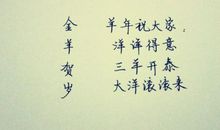 金羊贺岁
羊年祝大家:
洋洋得意
三羊开泰
大洋滚滚来